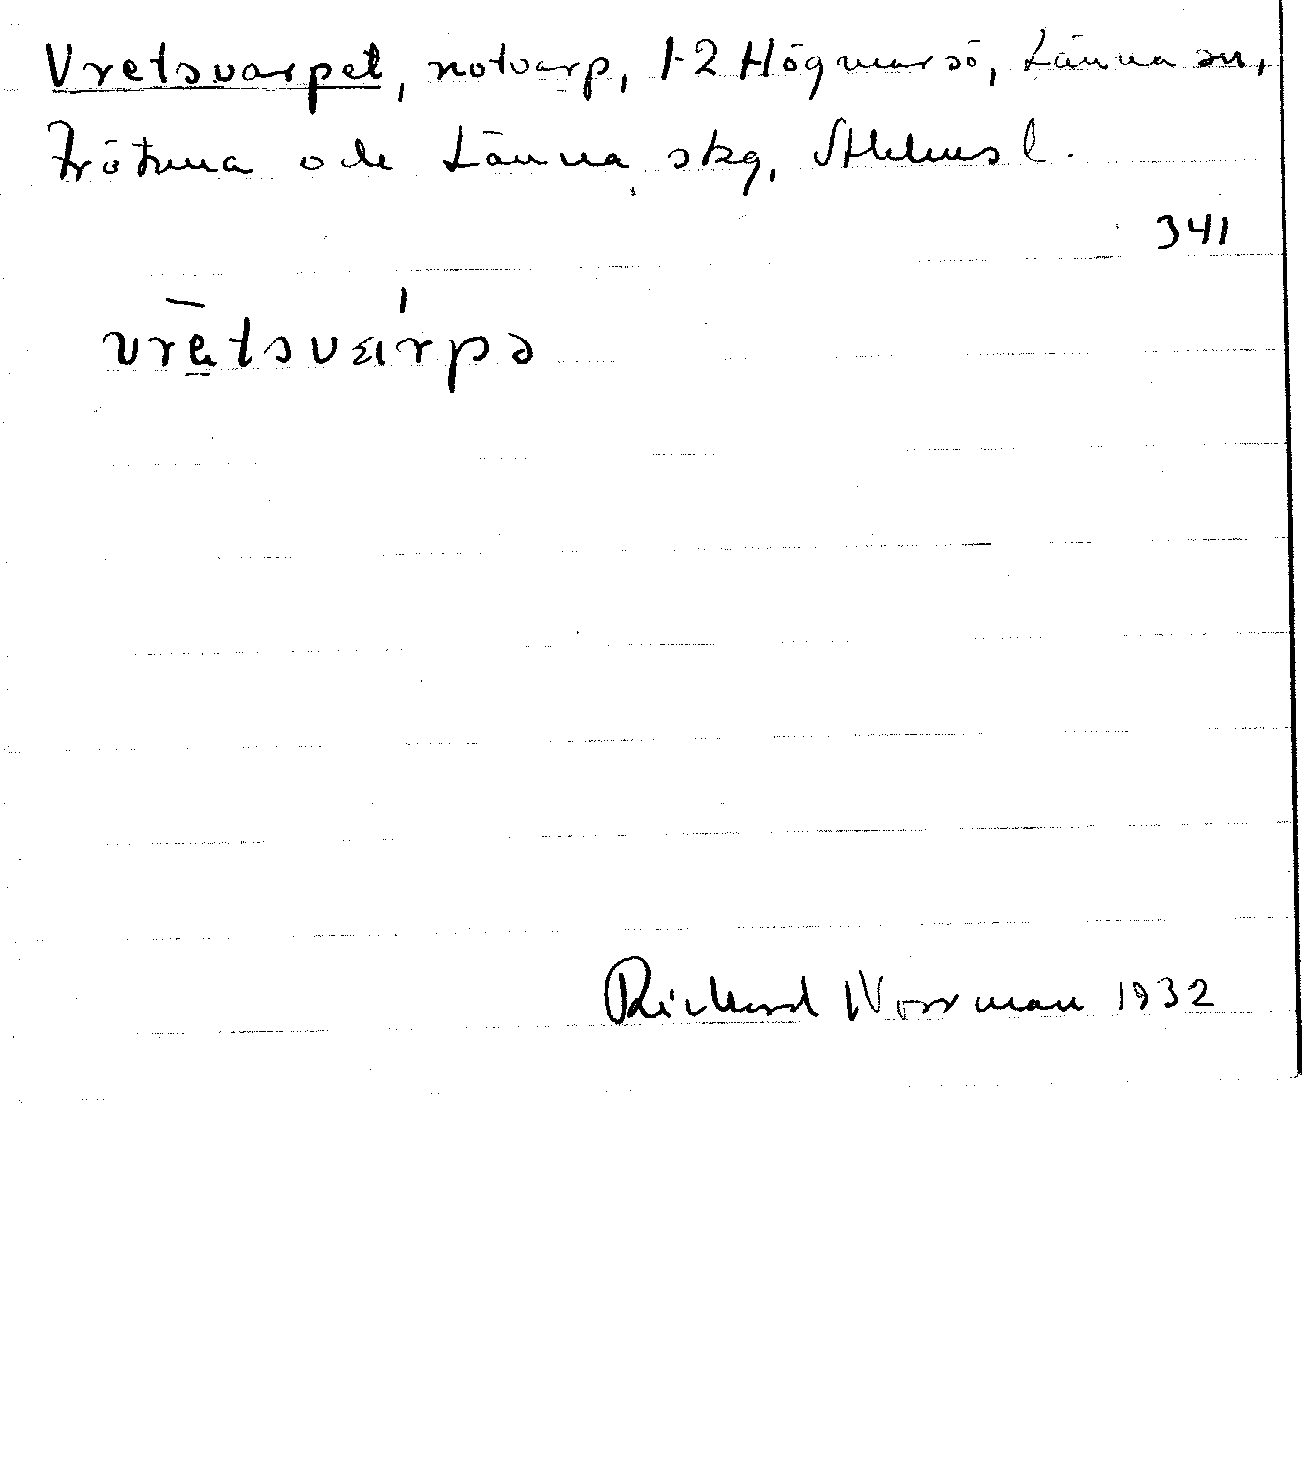 Vretsvarpet, notvarp, 1-2 Högmarsö, Länna sn,
Frötuna och Länna skg, Sthlms l.
341
Richard Norrman 1932